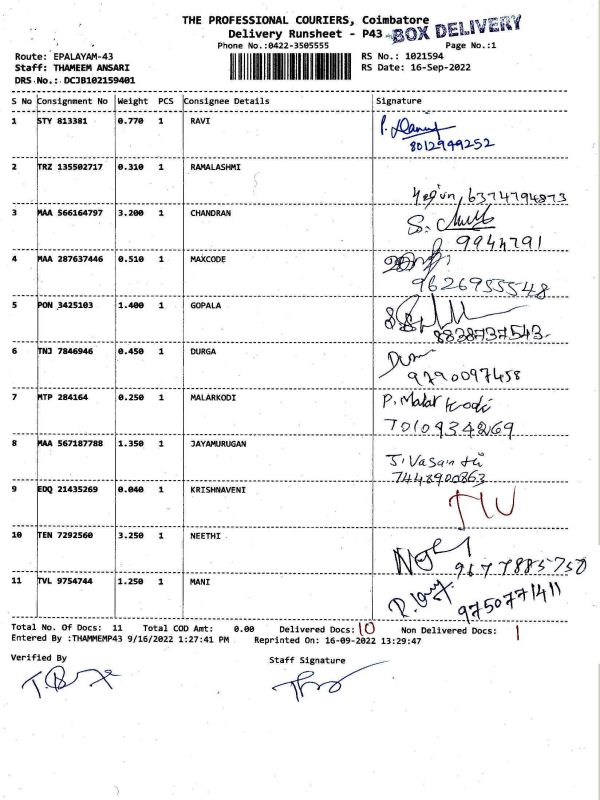 THE PROFESSIONAL COURIERS, Coimbatore
Delivery Runsheet - P43
BOX DELIVERY
Phone No.:0422-3505555
Page No.:1
Route: EPALAYAM-43
RS No.: 1021594
Staff: THAMEEM ANSARI
RS Date: 16-Sep-2022
DRS No.: DCJB102159401
S No Consignment No Weight PCS Consignee Details Signature
1 STY 813381 0.770 1 RAVI
8012949252
2 TRZ 135502717 0.310 1 RAMALASHMI
6374794873
3 MAA 566164797 3.200 1 CHANDRAN
9944791
4 MAA 287637446 0.510 1 MAXCODE
9626955548
5 PON 3425103 1.400 1 GOPALA
8838737543
6 TNJ 7846946 0.450 1 DURGA
9790097458
7 MTP 284164 0.250 1 MALARKODI P. Malar Kodi
8 MAA 567187788 1.350 1 JAYAMURUGAN
7448900863
9 EDQ 21435269 0.040 1 KRISHNAVENI
10 TEN 7292560 3.250 1 NEETHI
9677885750
11 TVL 9754744 1.250 1 MANI
9750771411
Total No. Of Docs: 11 Total COD Amt: 0.00 Delivered Docs: 10 Non Delivered Docs: 1
Entered By :THAMMEMP43 9/16/2022 1:27:41 PM Reprinted On: 16-09-2022 13:29:47
Verified By
Staff Signature